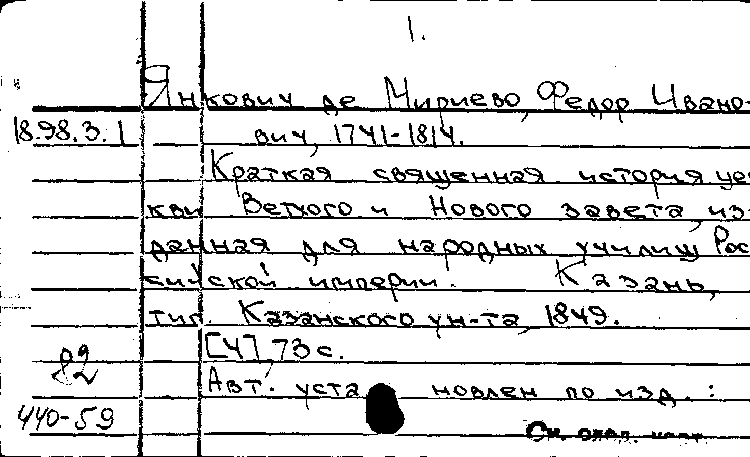 1.
Янкович де Мириево, Федор Ивано-
18.98.3.1 вич, 1741-1814.
Краткая священная история цер
кви Ветхого и Нового завета, из
данная для народных училищ Рос
сийской империи. Казань,
тип. Казанского ун-та, 1849.
[4], 73 с.
82
Авт. установлен по изд. :
440-59
См. след. карт.